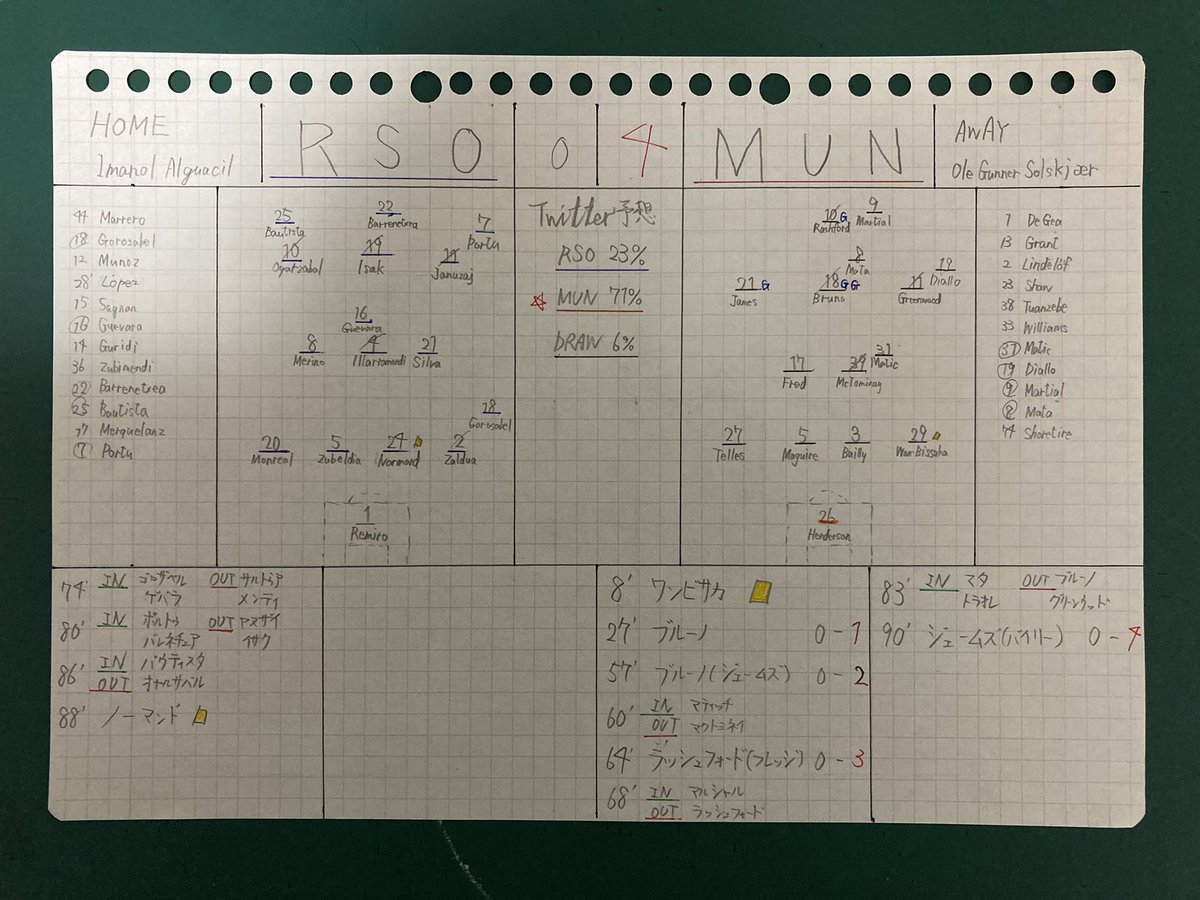 HOME
Imanol Alguacil
RSO
0
4
MUN
AWAY
Ole Gunner Solskjær
44 Marrero
18 Gorosabel
12 Munoz
28 López
15 Sagnan
16 Guevara
14 Guridi
36 Zubimendi
22 Barrenetxea
25 Bautista
17 Merquelanz
7 Portu
25
Bautista
22
Barrenetxea
7
Portu
10
Oyarzabal
19
Isak
11
Januzaj
16
Guevara
8
Merino
4
Illarramendi
21
Silva
18
Gorosabel
20
Monreal
5
Zubeldia
24
Normand
2
Zaldua
1
Remiro
Twitter予想
RSO 23%
☆ MUN 71%
DRAW 6%
10 G
Rashford
9
Martial
8
Mata
21 G
James
18 GG
Bruno
11
Greenwood
19
Diallo
17
Fred
39
McTominay
31
Matic
27
Telles
5
Maguire
3
Bailly
29
Wan-Bissaka
26
Henderson
1 De Gea
13 Grant
2 Lindelöf
23 Shaw
38 Tuanzebe
33 Williams
31 Matic
19 Diallo
9 Martial
8 Mata
74 Shoretire
74' IN ゴロサベル OUT サルドゥア
ゲバラ メンディ
80' IN ポルトゥ OUT ヤヌザイ
バレネチェア イサク
86' IN バウティスタ
OUT オヤルサバル
88' ノーマンド
8' ワンビサカ
27' ブルーノ 0-1
57' ブルーノ(ジェームズ) 0-2
60' IN マティッチ
OUT マクトミネイ
64' ラッシュフォード(フレッジ) 0-3
68' IN マルシャル
OUT ラッシュフォード
83' IN マタ OUT ブルーノ
トラオレ グリーンウッド
90' ジェームズ(バイリー) 0-4